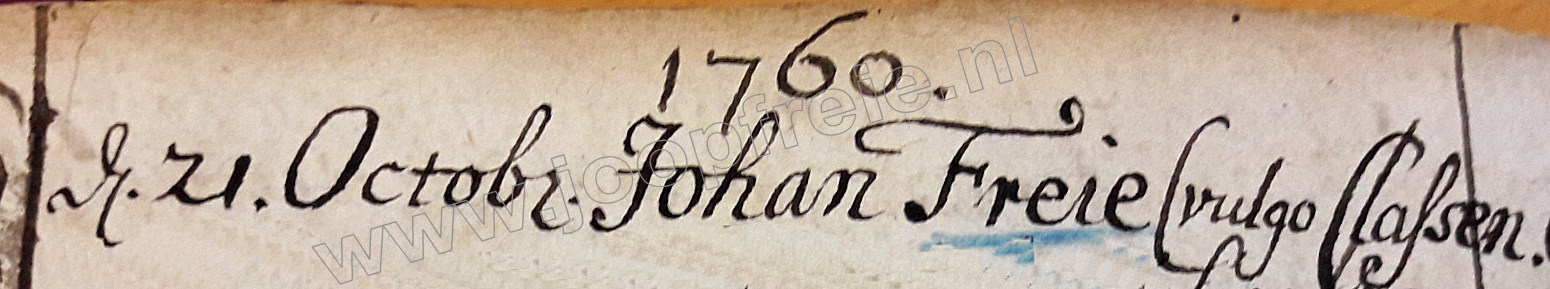 1760.
d. 21. Octobr. Johan Freie (vulgo Classen.
www.joopfreie.nl